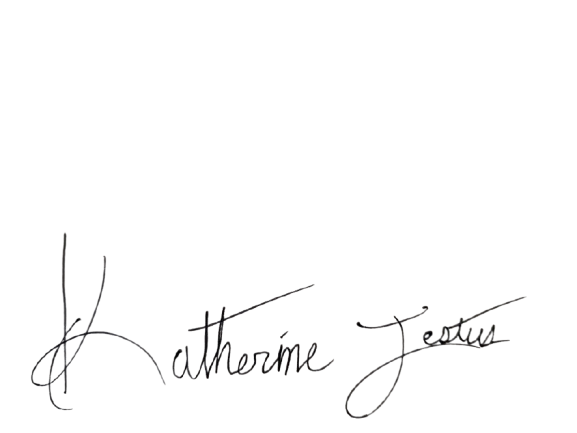 Katherine Jestus